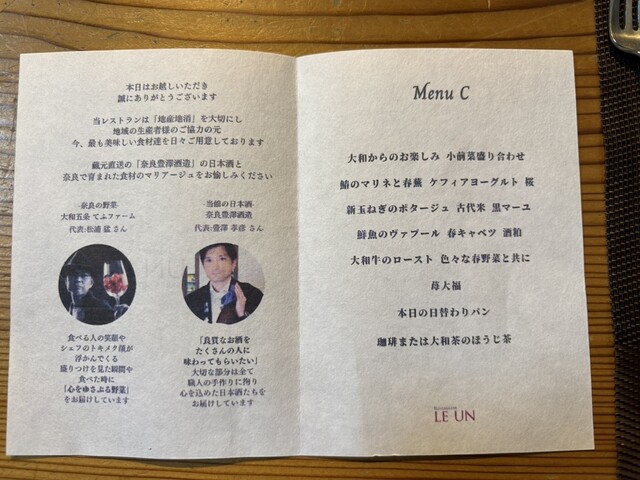 本日はお越しいただき
誠にありがとうございます
当レストランは「地産地消」を大切にし
地域の生産者様のご協力の元
今、最も美味しい食材達を日々ご用意しております
蔵元直送の「奈良豊澤酒造」の日本酒と
奈良で育まれた食材のマリアージュをお愉しみください
-奈良の野菜-
大和五條 てふファーム
代表:松浦 猛 さん
食べる人の笑顔や
シェフのトキメク顔が
浮かんでくる
盛りつけを見た瞬間や
食べた時に
「心をゆさぶる野菜」
をお届けしています
-当館の日本酒-
奈良豊澤酒造
代表:豊澤 孝彦 さん
「良質なお酒を
たくさんの人に
味わってもらいたい」
大切な部分は全て
職人の手作りに拘り
心を込めた日本酒たちを
お届けしています
Menu C
大和からのお楽しみ 小前菜盛り合わせ
鰆のマリネと春蕪 ケフィアヨーグルト 桜
新玉ねぎのポタージュ 古代米 黒マーユ
鮮魚のヴァプール 春キャベツ 酒粕
大和牛のロースト 色々な春野菜と共に
苺大福
本日の日替わりパン
珈琲または大和茶のほうじ茶
Restaurant
LE UN